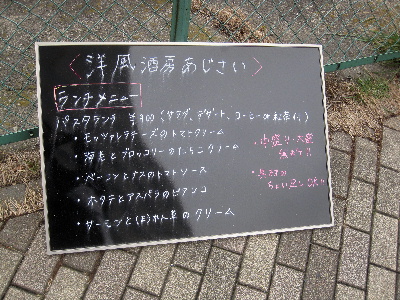 〈洋風酒房あじさい〉
ランチメニュー
パスタランチ ¥900 (サラダ、デザート、コーヒーor紅茶付)
・モッツァレラチーズのトマトクリーム
・海老とブロッコリーのたらこクリーム
・ベーコンとナスのトマトソース
・ホタテとアスパラのビアンコ
・サーモンとほうれん草のクリーム